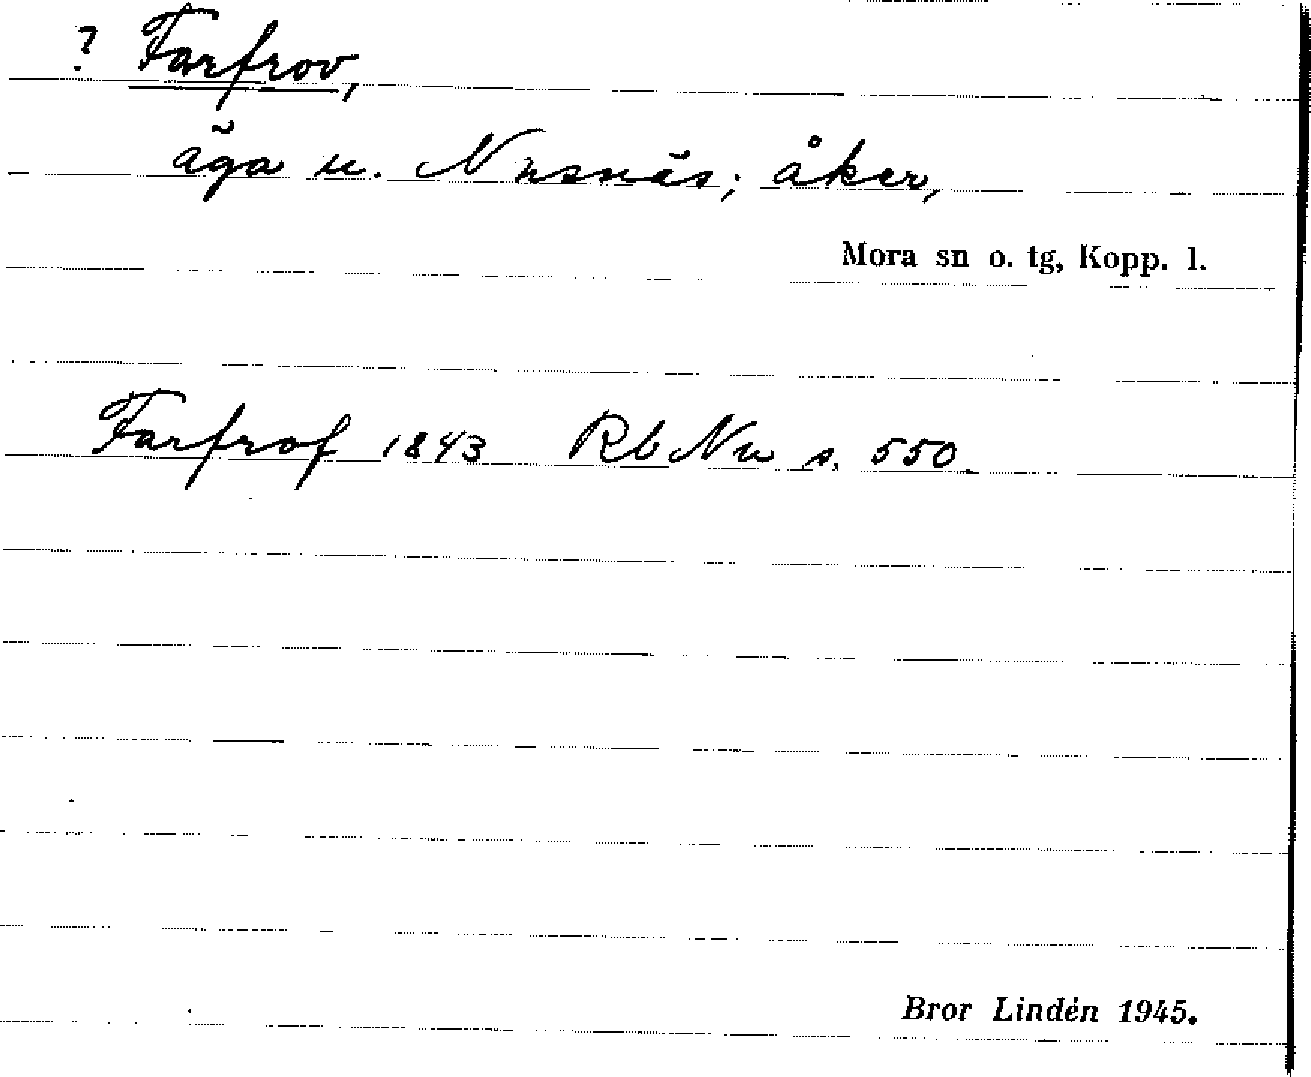 ? Farfrov,
äga u. Nusnäs; åker,
Mora sn o. tg, Kopp. l.
Farfrof 1843 Rb Nu s. 550.
Bror Lindén 1945.